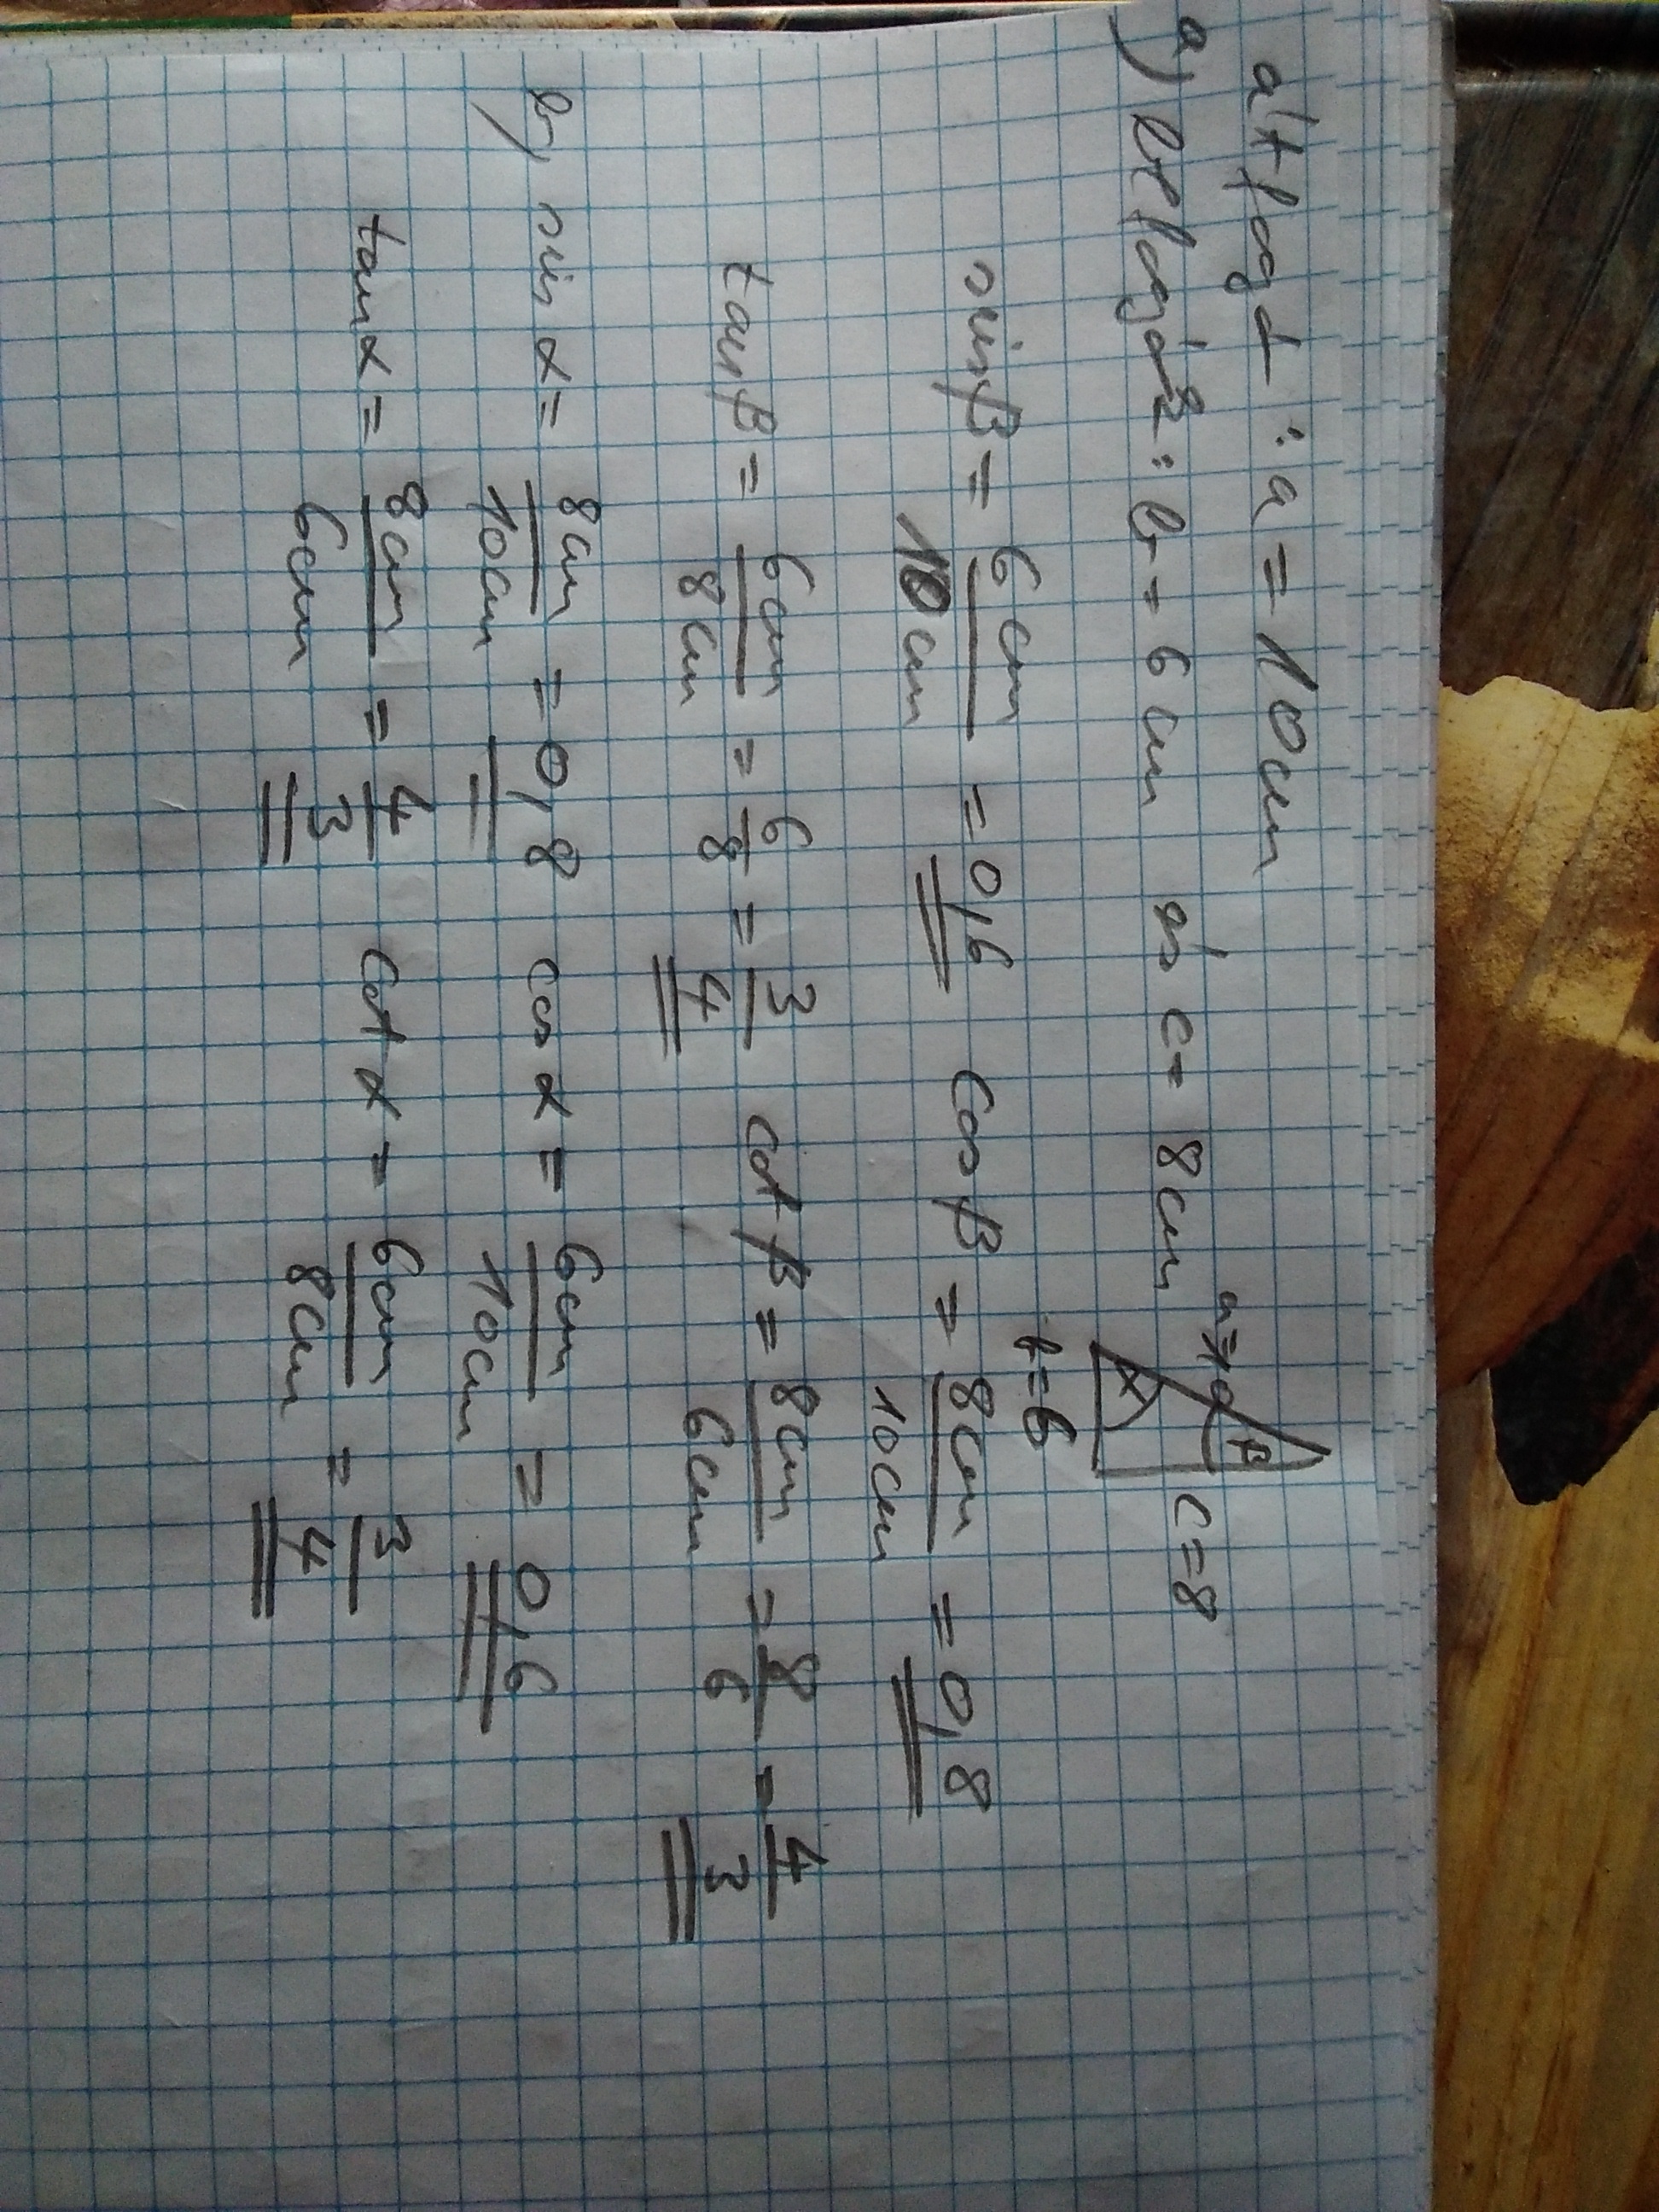 átfogó: a = 10cm
a) befogók: b = 6 cm és c = 8cm
a=10
β
α
c=8
b=6
sin β = 6cm / 10cm = 0,6 cos β = 8cm / 10cm = 0,8
tan β = 6cm / 8cm = 6/8 = 3/4 cot β = 8cm / 6cm = 8/6 = 4/3
b) sin α = 8cm / 10cm = 0,8 cos α = 6cm / 10cm = 0,6
tan α = 8cm / 6cm = 4/3 cot α = 6cm / 8cm = 3/4